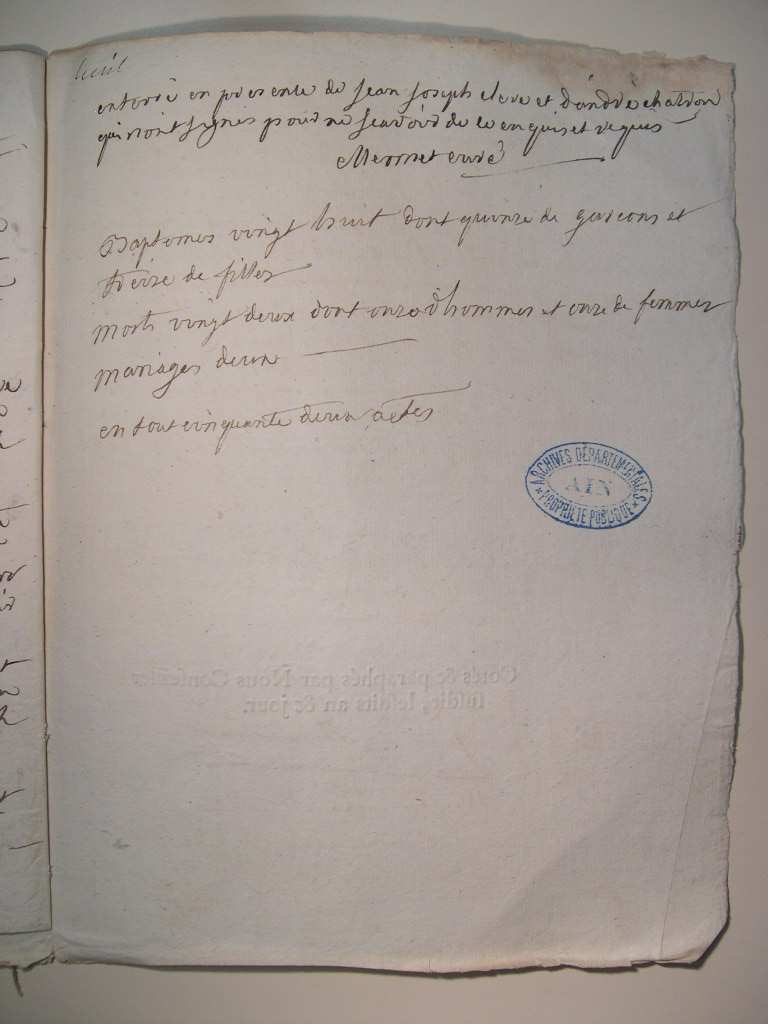 enterré en presente de jean joseph eleve et d'andré chatron
qui n'ont signes pour ne scavoir de ce enquis et requis
Mermet curé
Baptemes vingt huit dont quinze de garcons et
treize de filles
morts vingt deux dont onze d'hommes et onze de femmes
mariages deux
en tout cinquante deux actes
ARCHIVES DÉPARTEMENTALES
AIN
PROPRIÉTÉ PUBLIQUE
Cotés & paraphés par Nous Conseiller
susdit, lesdits an & jour.